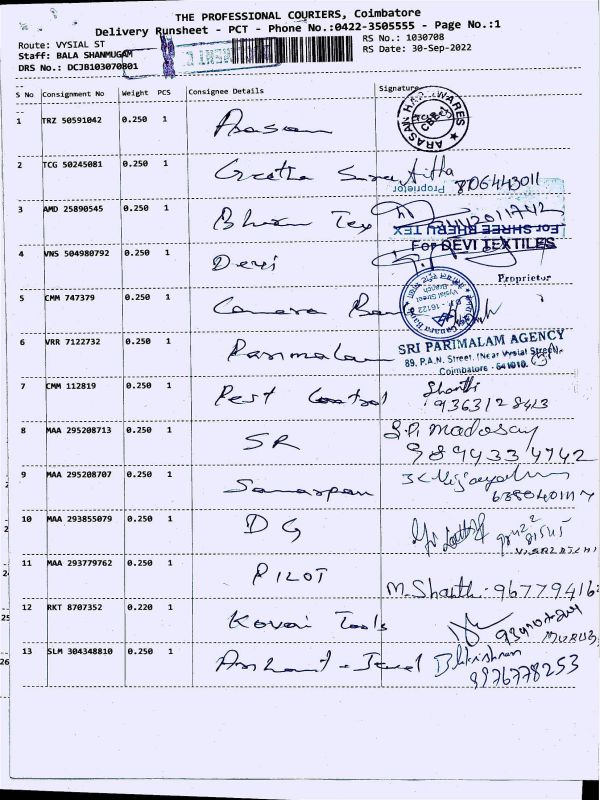 THE PROFESSIONAL COURIERS, Coimbatore
Delivery Runsheet - PCT - Phone No.:0422-3505555 - Page No.:1
Route: VYSIAL ST RS No.: 1030708
Staff: BALA SHANMUGAM RS Date: 30-Sep-2022
DRS No.: DCJB103070801
S No Consignment No Weight PCS Consignee Details Signature
1 TRZ 50591042 0.250 1 Arasan ARASAN HARDWARES CBE-1
2 TCG 50245081 0.250 1 Geetha
Proprietor
3 AMD 25890545 0.250 1 Bheru Tex
For SHREE BHERU TEX
4 VNS 504980792 0.250 1 Devi For DEVI TEXTILES
Proprietor
5 CMM 747379 0.250 1 Canara Bank
6 VRR 7122732 0.250 1 Parimalam SRI PARIMALAM AGENCY
89, P.A.N. Street, (Near Vysial Street),
Coimbatore - 641010.
7 CMM 112819 0.250 1 Pest Control Shanthi
9363128413
8 MAA 295208713 0.250 1 SR
9894334742
9 MAA 295208707 0.250 1
10 MAA 293855079 0.250 1 DG
11 MAA 293779762 0.250 1 PILOT M. Shanthi
12 RKT 8707352 0.220 1 Kovai Tools
13 SLM 304348810 0.250 1
9976778253
25
26